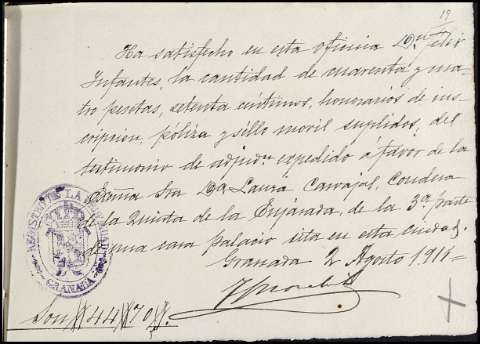 19
Ha satisfecho en esta oficina Dn. Felix
Infantes, la cantidad de cuarenta y cua-
tro pesetas, setenta céntimos, honorarios de ins-
cripcion, póliza y sello movil suplidos, del
testimonio de adjudon expedido a favor de la
Excma Sra Da Laura Carvajal, Condesa
de la Quinta de la Enjarada, de la 3a parte
de una casa palacio sita en esta ciudad.
Granada 2 Agosto 1911=
Son 44 70
REGISTRO DE LA
GRANADA